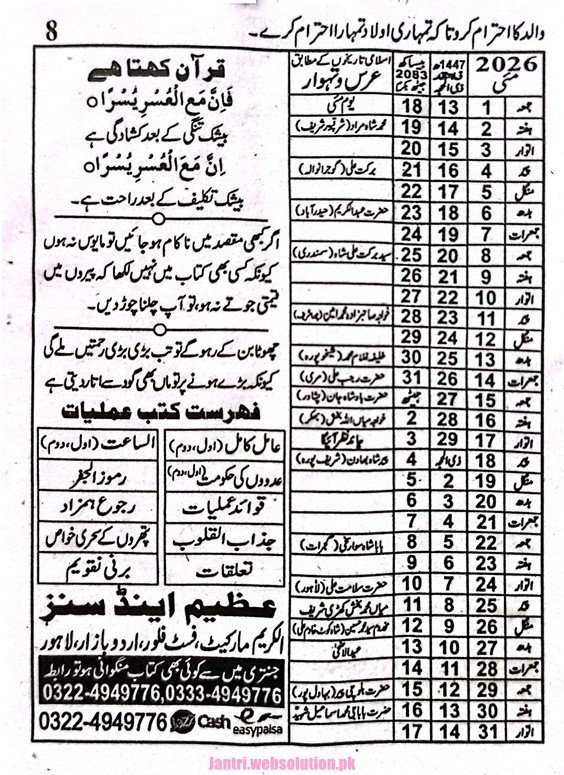 والد کا احترام کرو تا کہ تمہاری اولاد تمہارا احترام کرے۔
8
2026 مئی
1447ھ ذیقعد ذی الحجہ
بیساکھ 2083 جیٹھ بکرمی
اسلامی تاریخوں کے مطابق عرس و تہوار
جمعہ 1 13 18 یوم مئی
ہفتہ 2 14 19 محمد شاہ مراد (شرقپور شریف)
اتوار 3 15 20
پیر 4 16 21 برکت علی (گوجرانوالہ)
منگل 5 17 22
بدھ 6 18 23 حضرت عبدالکریم (حیدرآباد)
جمعرات 7 19 24
جمعہ 8 20 25 سید برکت علی شاہ (سمندری)
ہفتہ 9 21 26
اتوار 10 22 27
پیر 11 23 28 خواجہ صاحبزادہ محمد امین
منگل 12 24 29
بدھ 13 25 30 خلیفہ غلام محمد (شیخوپورہ)
جمعرات 14 26 31 حضرت رجب علی (مری)
جمعہ 15 27 جیٹھ حضرت بادشاہ جان (پشاور)
ہفتہ 16 28 2 خواجہ میاں اللہ بخش (بھکر)
اتوار 17 29 3 چاند نظر آئیگا
پیر 18 ذی الحجہ 4 پیر شاہ بھاون (شریف پورہ)
منگل 19 2 5
بدھ 20 3 6
جمعرات 21 4 7
جمعہ 22 5 8 (گجرات)
ہفتہ 23 6 9
اتوار 24 7 10 حضرت سلامت علی (لاہور)
پیر 25 8 11 میاں محمد بخش کھڑی شریف
منگل 26 9 12
بدھ 27 10 13 عیدالاضحیٰ
جمعرات 28 11 14
جمعہ 29 12 15 (بہاول پور)
ہفتہ 30 13 16 حضرت بابا جی محمد اسماعیل شہید
اتوار 31 14 17
قرآن کہتا ھے
فَاِنَّ مَعَ الْعُسْرِ يُسْرًا
بیشک تنگی کے بعد کشادگی ہے
اِنَّ مَعَ الْعُسْرِ يُسْرًا
بیشک تکلیف کے بعد راحت ہے۔
اگر کبھی مقصد میں ناکام ہو جائیں تو مایوس نہ ہوں
کیونکہ کسی بھی کتاب میں نہیں لکھا کہ پیروں میں
قیمتی جوتے نہ ہو، تو آپ چلنا چھوڑ دیں۔
چھوٹا بن کے رہو گے تو تب بڑی بڑی رحمتیں ملے گی
کیونکہ بڑے ہونے پر تو ماں بھی گود سے اتار دیتی ہے
فہرست کتب عملیات
عامل کامل (اول، دوم) الساعت (اول، دوم)
عددوں کی حکومت (اول، دوم) رموز الجفر
قوائد عملیات رجوع ہمزاد
جذاب القلوب پتھروں کے سحری خواص
تعلقات برنی تقویم
عظیم اینڈ سنز
الکریم مارکیٹ، فسٹ فلور، اردو بازار، لاہور
جنتری میں سے کوئی بھی کتاب منگوانی ہو تو رابطہ
0322-4949776,0333-4949776
0322-4949776 Jazz Cash easypaisa
Jantri.websolution.pk